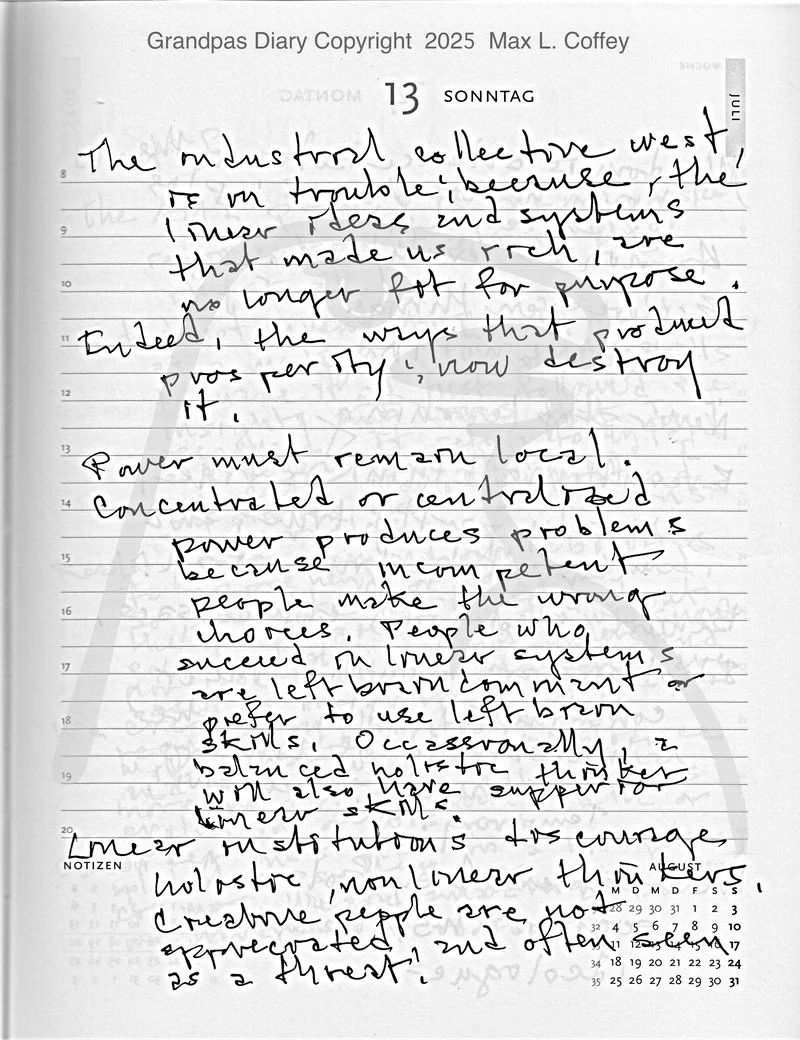 Grandpas Diary Copyright 2025 Max L. Coffey
WOCHE
MONTAG
13 SONNTAG
JULI
The industrial collective west,
8
is in trouble, because, the
linear ideas and systems
9
that made us rich, are
10
no longer fit for purpose.
11
Indeed, the ways that produced
prosperity, now destroy
12
it.
13
Power must remain local.
14
Concentrated or centralized
power produces problems
15
because incompetent
people make the wrong
16
choices. People who
succeed in linear systems
17
are left brain dominant or
prefer to use left brain
18
skills. Occassionally, a
balanced holistic thinker
19
will also have supperior
linear skills.
20
Linear institutions discourage
NOTIZEN
AUGUST
holistic, nonlinear thinkers.
M D M D F S S
28 29 30 31 1 2 3
Creative people are not
32 4 5 6 7 8 9 10
appreciated, and often seen
11 12 13 14 15 16 17
34 18 19 20 21 22 23 24
as a threat.
35 25 26 27 28 29 30 31